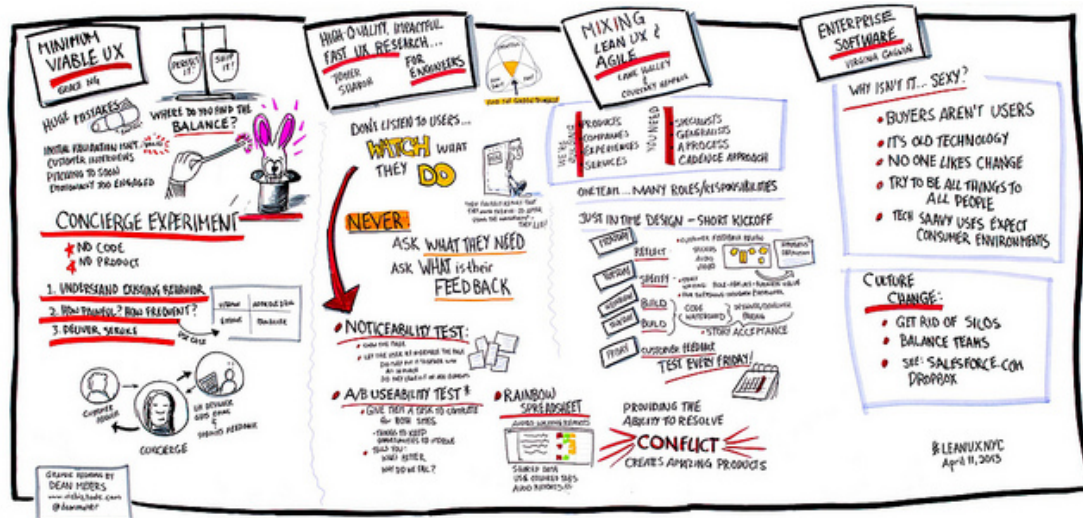 MINIMUM
VIABLE UX
GRACE NG
PERFECT IT!
SHIP IT!
HUGE MISTAKES
WHERE DO YOU FIND THE
BALANCE?
INITIAL VALIDATION ISN'T
CUSTOMER INTERVIEWS
PITCHING TO SOON
EMOTIONALLY TOO ENGAGED
CONCIERGE EXPERIMENT
NO CODE
NO PRODUCT
1. UNDERSTAND EXISTING BEHAVIOR
2. HOW PAINFUL? HOW FREQUENT?
3. DELIVER SERVICE
USE CASE
CONCIERGE
GRAPHIC RECORDING BY
DEAN MEYERS
@deanmeyer
HIGH-QUALITY, IMPACTFUL
FAST UX RESEARCH...
FOR
ENGINEERS
TOMER
SHARON
DON'T LISTEN TO USERS...
WATCH WHAT
THEY DO
NEVER:
ASK WHAT THEY NEED
ASK WHAT is their
FEEDBACK
NOTICEABILITY TEST:
SHOW ONE PAGE
A/B USEABILITY TEST*
GIVE THEM A TASK TO COMPLETE
BOTH SITES
TELLS YOU:
WHAT'S BETTER
WHY DO WE FAIL?
RAINBOW
SPREADSHEET
AVOID WRITING REPORTS
SHARED DATA
MIXING
LEAN UX &
AGILE
LANE HALLEY
&
COURTNEY HEMPHILL
PRODUCTS
COMPANIES
EXPERIENCES
SERVICES
SPECIALISTS
GENERALISTS
A PROCESS
CADENCE APPROACH
ONE TEAM... MANY ROLES/RESPONSIBILITIES
JUST IN TIME DESIGN - SHORT KICKOFF
MONDAY
REFLECT
CUSTOMER FEEDBACK REVIEW
TUESDAY
SPECIFY
WEDNESDAY
BUILD
THURSDAY
BUILD
CODE
WHITEBOARD
DESIGNER/DEVELOPER
PAIRING
STORY ACCEPTANCE
FRIDAY
CUSTOMER FEEDBACK
TEST EVERY FRIDAY!
PROVIDING THE
ABILITY TO RESOLVE
CONFLICT
CREATES AMAZING PRODUCTS
ENTERPRISE
SOFTWARE
VIRGINIA CAGWIN
WHY ISN'T IT... SEXY?
BUYERS AREN'T USERS
IT'S OLD TECHNOLOGY
NO ONE LIKES CHANGE
TRY TO BE ALL THINGS TO
ALL PEOPLE
TECH SAAVY USES EXPECT
CONSUMER ENVIRONMENTS
CULTURE
CHANGE:
GET RID OF SILOS
BALANCE TEAMS
SEE: SALESFORCE.COM
DROPBOX
#LEANUXNYC
April 11, 2013